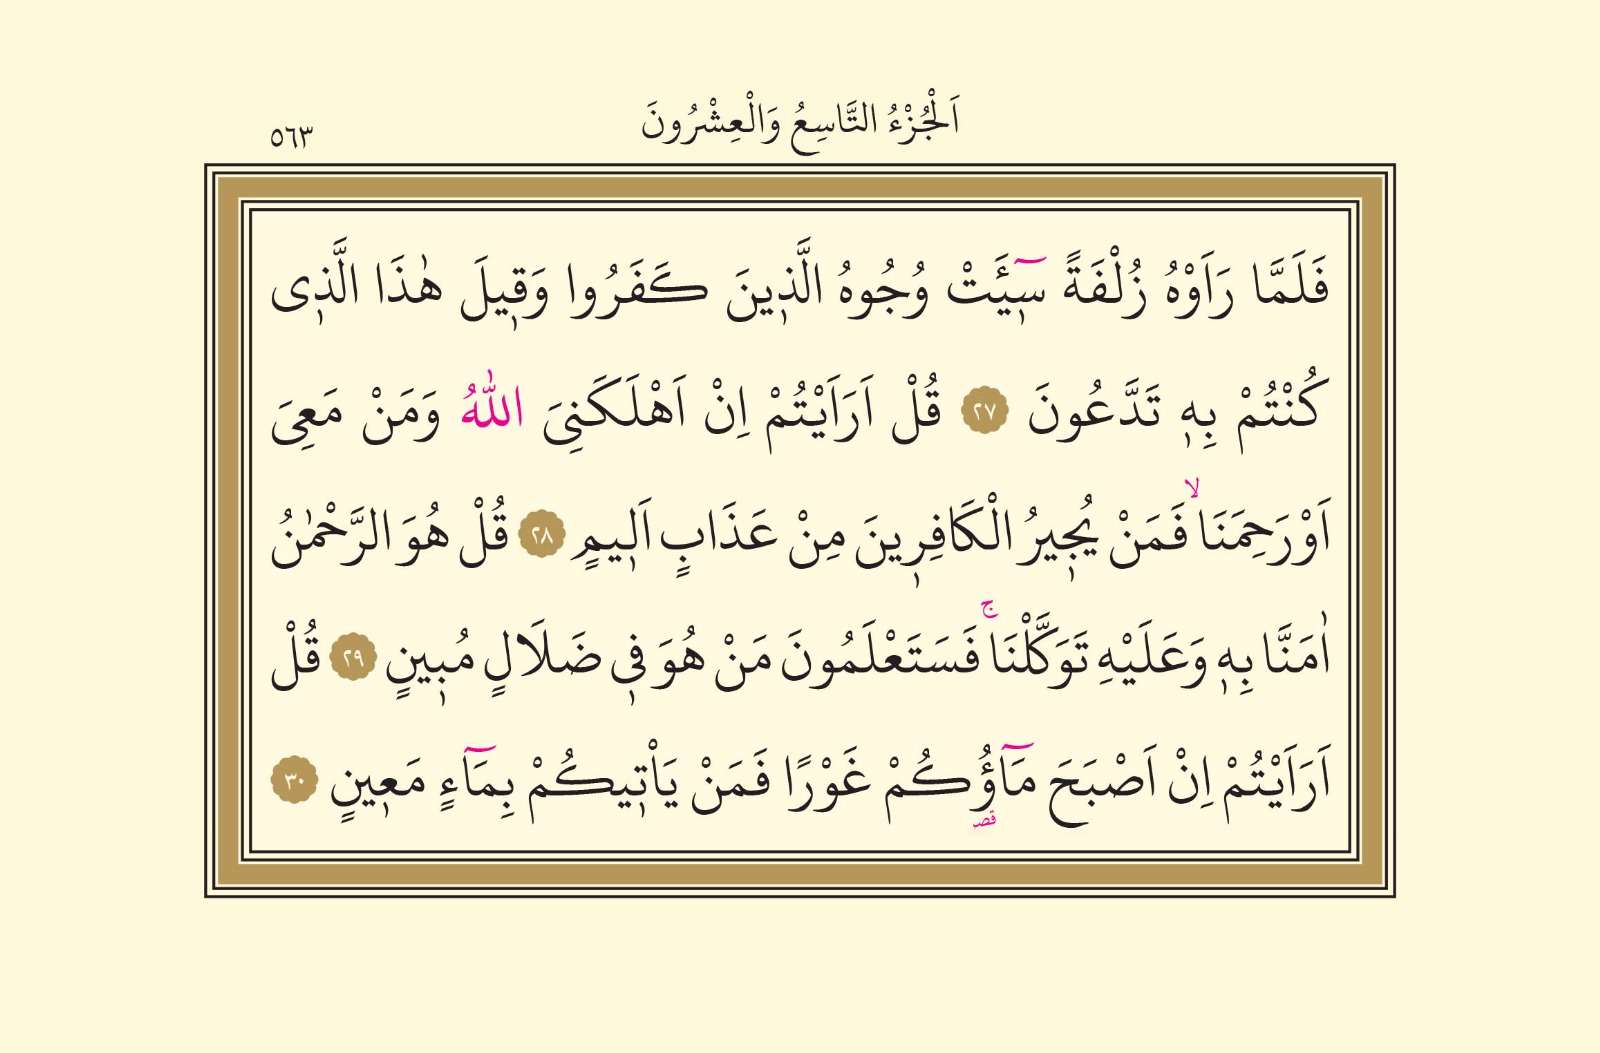 اَلْجُزْءُ التَّاسِعُ وَالْعِشْرُونَ
٥٦٣
فَلَمَّا رَاَوْهُ زُلْفَةً سٓيـَٔتْ وُجُوهُ الَّذ۪ينَ كَفَرُوا وَق۪يلَ هٰذَا الَّذ۪ى
كُنْتُمْ بِه۪ تَدَّعُونَ ٢٧ قُلْ اَرَاَيْتُمْ اِنْ اَهْلَكَنِىَ اللّٰهُ وَمَنْ مَعِىَ
اَوْ رَحِمَنَاۙ فَمَنْ يُج۪يرُ الْكَافِر۪ينَ مِنْ عَذَابٍ اَل۪يمٍ ٢٨ قُلْ هُوَ الرَّحْمٰنُ
اٰمَنَّا بِه۪ وَعَلَيْهِ تَوَكَّلْنَاۚ فَسَتَعْلَمُونَ مَنْ هُوَ ف۪ى ضَلَالٍ مُب۪ينٍ ٢٩ قُلْ
اَرَاَيْتُمْ اِنْ اَصْبَحَ مَٓاؤُ۬كُمْ غَوْرًا فَمَنْ يَاْت۪يكُمْ بِمَٓاءٍ مَع۪ينٍ ٣٠
قصر